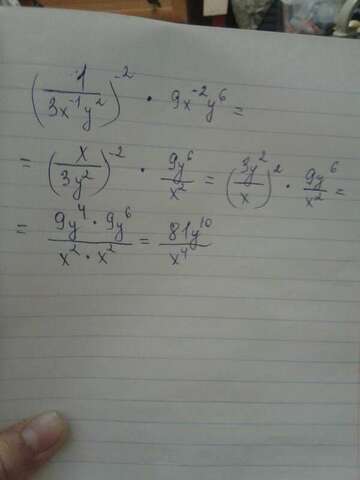 (1/(3x⁻¹y²))⁻² · 9x⁻²y⁶ =
= (x/(3y²))⁻² · 9y⁶/x² = (3y²/x)² · 9y⁶/x² =
= (9y⁴ · 9y⁶)/(x² · x²) = 81y¹⁰/x⁴